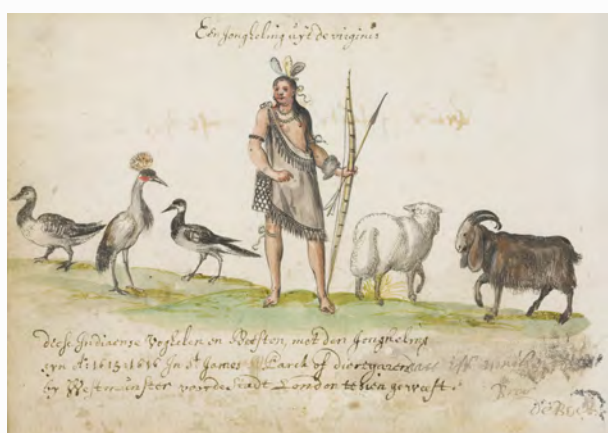 Een Jongeling uyt de virginis
diese Indiaense Voghelen en Beesten, met den Jonghelinck
syn A° 1615. 1616 In St James Parck of diergaren
by Westmunster voor de stadt London te sien geweest.